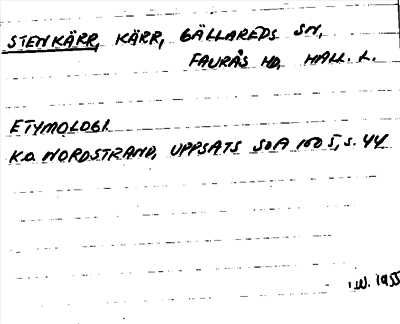 STENKÄRR, KÄRR, GÄLLAREDS SN,
FAURÅS HD, HALL. L.
ETYMOLOGI.
K.O. NORDSTRAND, UPPSATS SOA 1505, S. 44
I.W. 1955